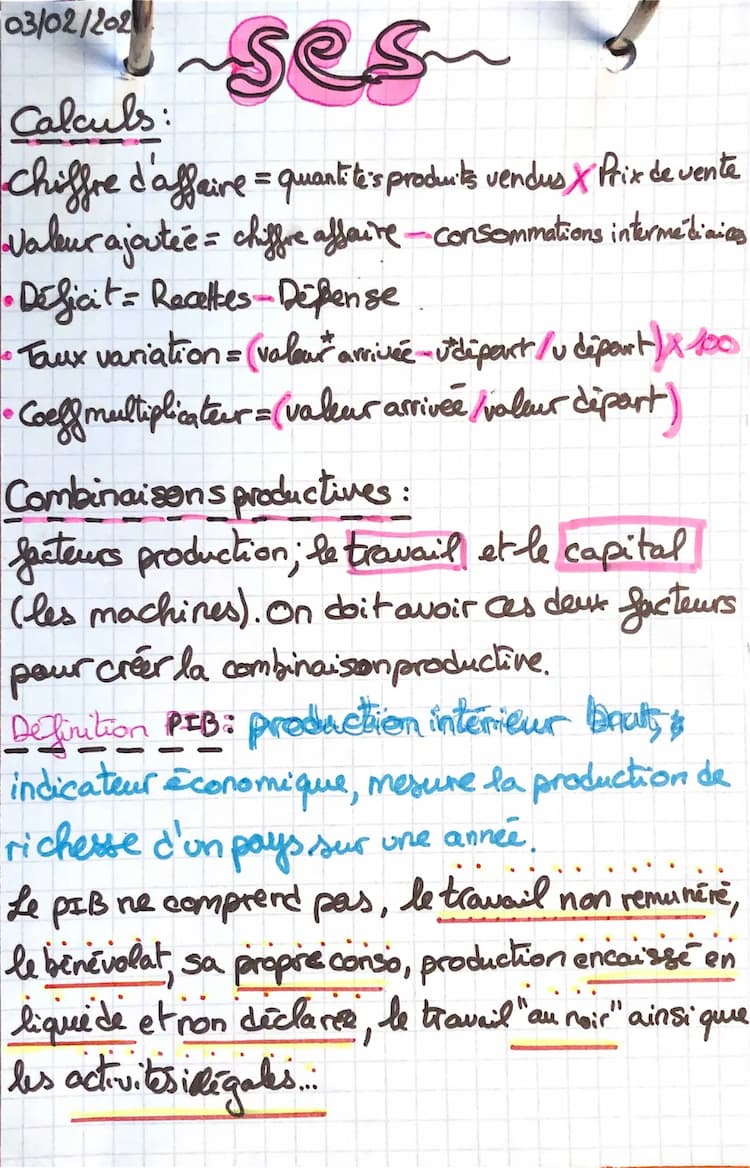 03/02/202
SES
Calculs :
• Chiffre d'affaire = quantités produits vendus X Prix de vente
• Valeur ajoutée = chiffre affaire - consommations intermédiaires
• Déficit = Recettes - Dépense
• Taux variation = (valeur* arrivée - v* départ / v départ) X 100
• Coeff multiplicateur = (valeur arrivée / valeur départ)
Combinaisons productives :
facteurs production ; le travail et le capital
(les machines). On doit avoir ces deux facteurs
pour créer la combinaison productive.
Définition PIB : production intérieur brut,
indicateur économique, mesure la production de
richesse d'un pays sur une année.
Le PIB ne comprend pas, le travail non remunéré,
le bénévolat, sa propre conso, production encaissé en
liquide et non déclarée, le travail "au noir" ainsi que
les activités illégales...